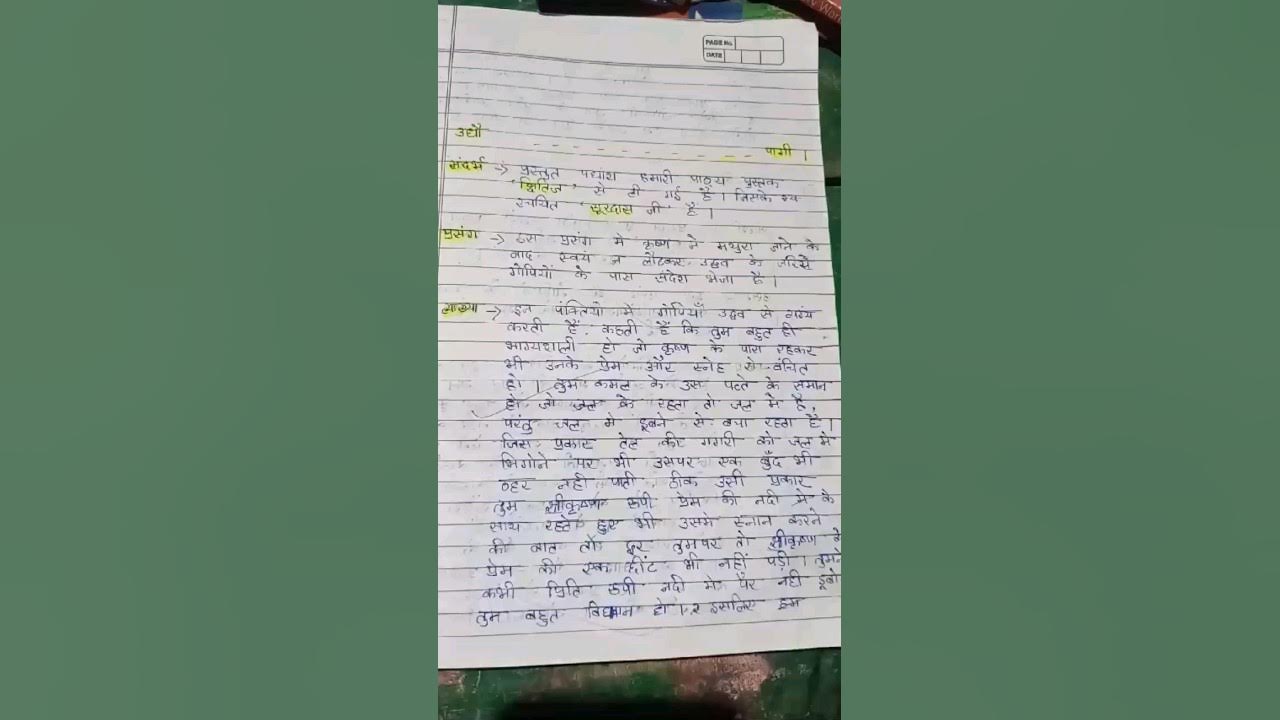 PAGE No.
DATE
उधौ
- - - - - - - - - - - पागी ।
संदर्भ -> प्रस्तुत पद्यांश हमारी पाठ्य पुस्तक
'क्षितिज' से ली गई है । जिसके
रचयित 'सूरदास जी' है ।
प्रसंग -> इस प्रसंग मे कृष्ण ने मथुरा जाने के
बाद स्वयं न लौटकर उद्धव के जरिये
गोपियों के पास संदेश भेजा है ।
व्याख्या -> इन पंक्तियो में गोपियाँ उद्धव से व्यंग्य
करती हैं, कहती हैं कि तुम बहुत ही
भाग्यशाली हो जो कृष्ण के पास रहकर
भी उनके प्रेम और स्नेह से वंचित
हो । तुम कमल के उस पत्ते के समान
हो जो जल के रहता तो जल मे है,
परंतु जल मे डूबने से बचा रहता है ।
जिस प्रकार तेल की गगरी को जल मे
भिगोने पर भी उसपर एक बुँद भी
ठहर नही पाती, ठीक उसी प्रकार
तुम श्रीकृष्ण रूपी प्रेम की नदी मे के
साथ रहते हुए भी उसमे स्नान करने
की बात तो दूर तुमपर तो श्रीकृष्ण के
प्रेम की एक छींट भी नहीं पड़ी । तुमने
कभी प्रिति रूपी नदी मे पैर नही डूबो
तुम बहुत विद्यमान हो । इसलिए हम